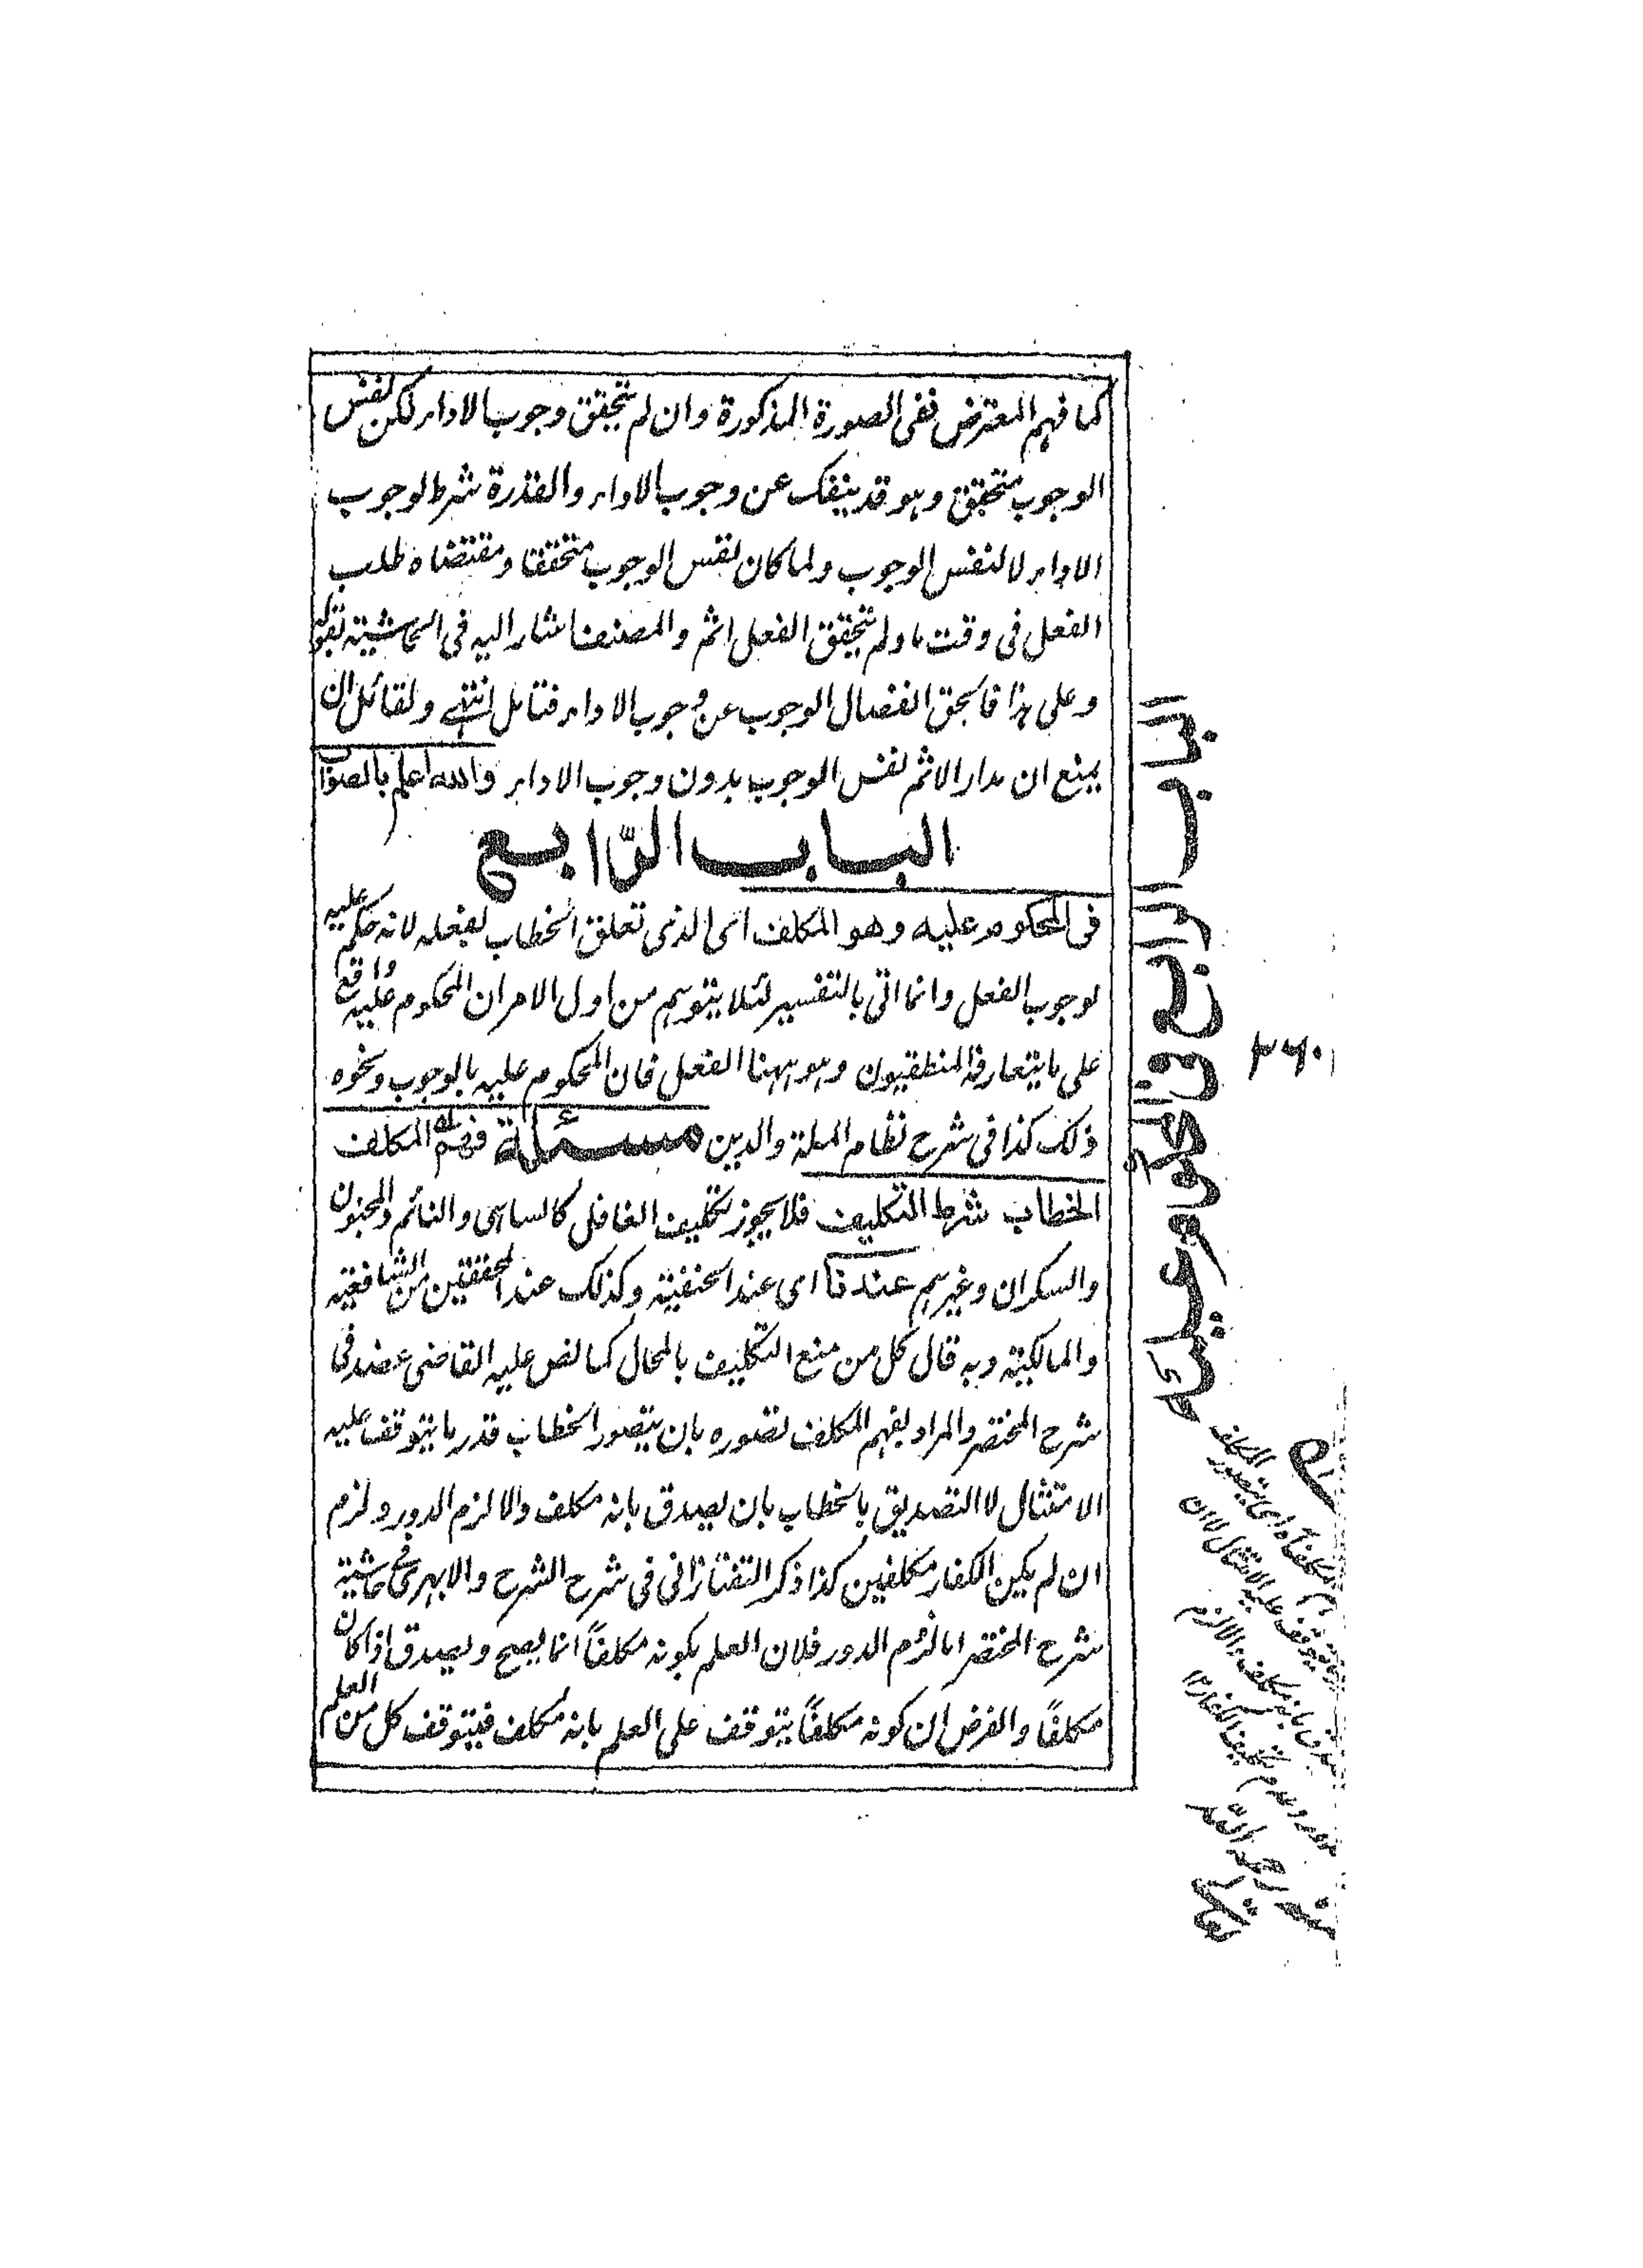 كما فهم المعترض ففى الصورة المذكورة وان لم يتحقق وجوب الاداء لكن نفس
الوجوب متحقق وهو قد ينفك عن وجوب الاداء والقدرة شرط لوجوب
الاداء لا لنفس الوجوب ولما كان نفس الوجوب متحققا ومقتضاه طلب
الفعل فى وقت ما ولم يتحقق الفعل اثم والمصنف اشار اليه فى الحاشية بقوله
وعلى هذا فالحق انفصال الوجوب عن وجوب الاداء فتامل انتهى ولقائل ان
يمنع ان مدار الاثم نفس الوجوب بدون وجوب الاداء والله اعلم بالصواب
الباب الرّابع
فى المحكوم عليه وهو المكلف اى الذى تعلق الخطاب بفعله لانه حكم عليه
لوجوب الفعل وانما اتى بالتفسير لئلا يتوهم من اول الامر ان المحكوم عليه واقع
على ما يتعارفه المنطقيون وهو ههنا الفعل فان المحكوم عليه بالوجوب ونحوه
ذلك كذا فى شرح نظام الملة والدين مسئلة فهم المكلف
الخطاب شرط التكليف فلا يجوز تكليف الغافل كالساهى والنائم والمجنون
والسكران وغيرهم عندنا اى عند الحنفية وكذلك عند المحققين من الشافعية
والمالكية وبه قال كل من منع التكليف بالمحال كما نص عليه القاضى عضد فى
شرح المختصر والمراد بفهم المكلف تصوره بان يتصور الخطاب قدر ما يتوقف عليه
الامتثال لا التصديق بالخطاب بان يصدق بانه مكلف والا لزم الدور ولزم
ان لم يكن الكفار مكلفين كذا ذكر التفتازانى فى شرح الشرح والابهرى فى حاشية
شرح المختصر اما لزوم الدور فلان العلم بكونه مكلفاً انما يصح ويصدق اذا كان
مكلفاً والفرض ان كونه مكلفاً يتوقف على العلم بانه مكلف فيتوقف كل من العلم
الباب الرابع فى المحكوم عليه
٣٦٠